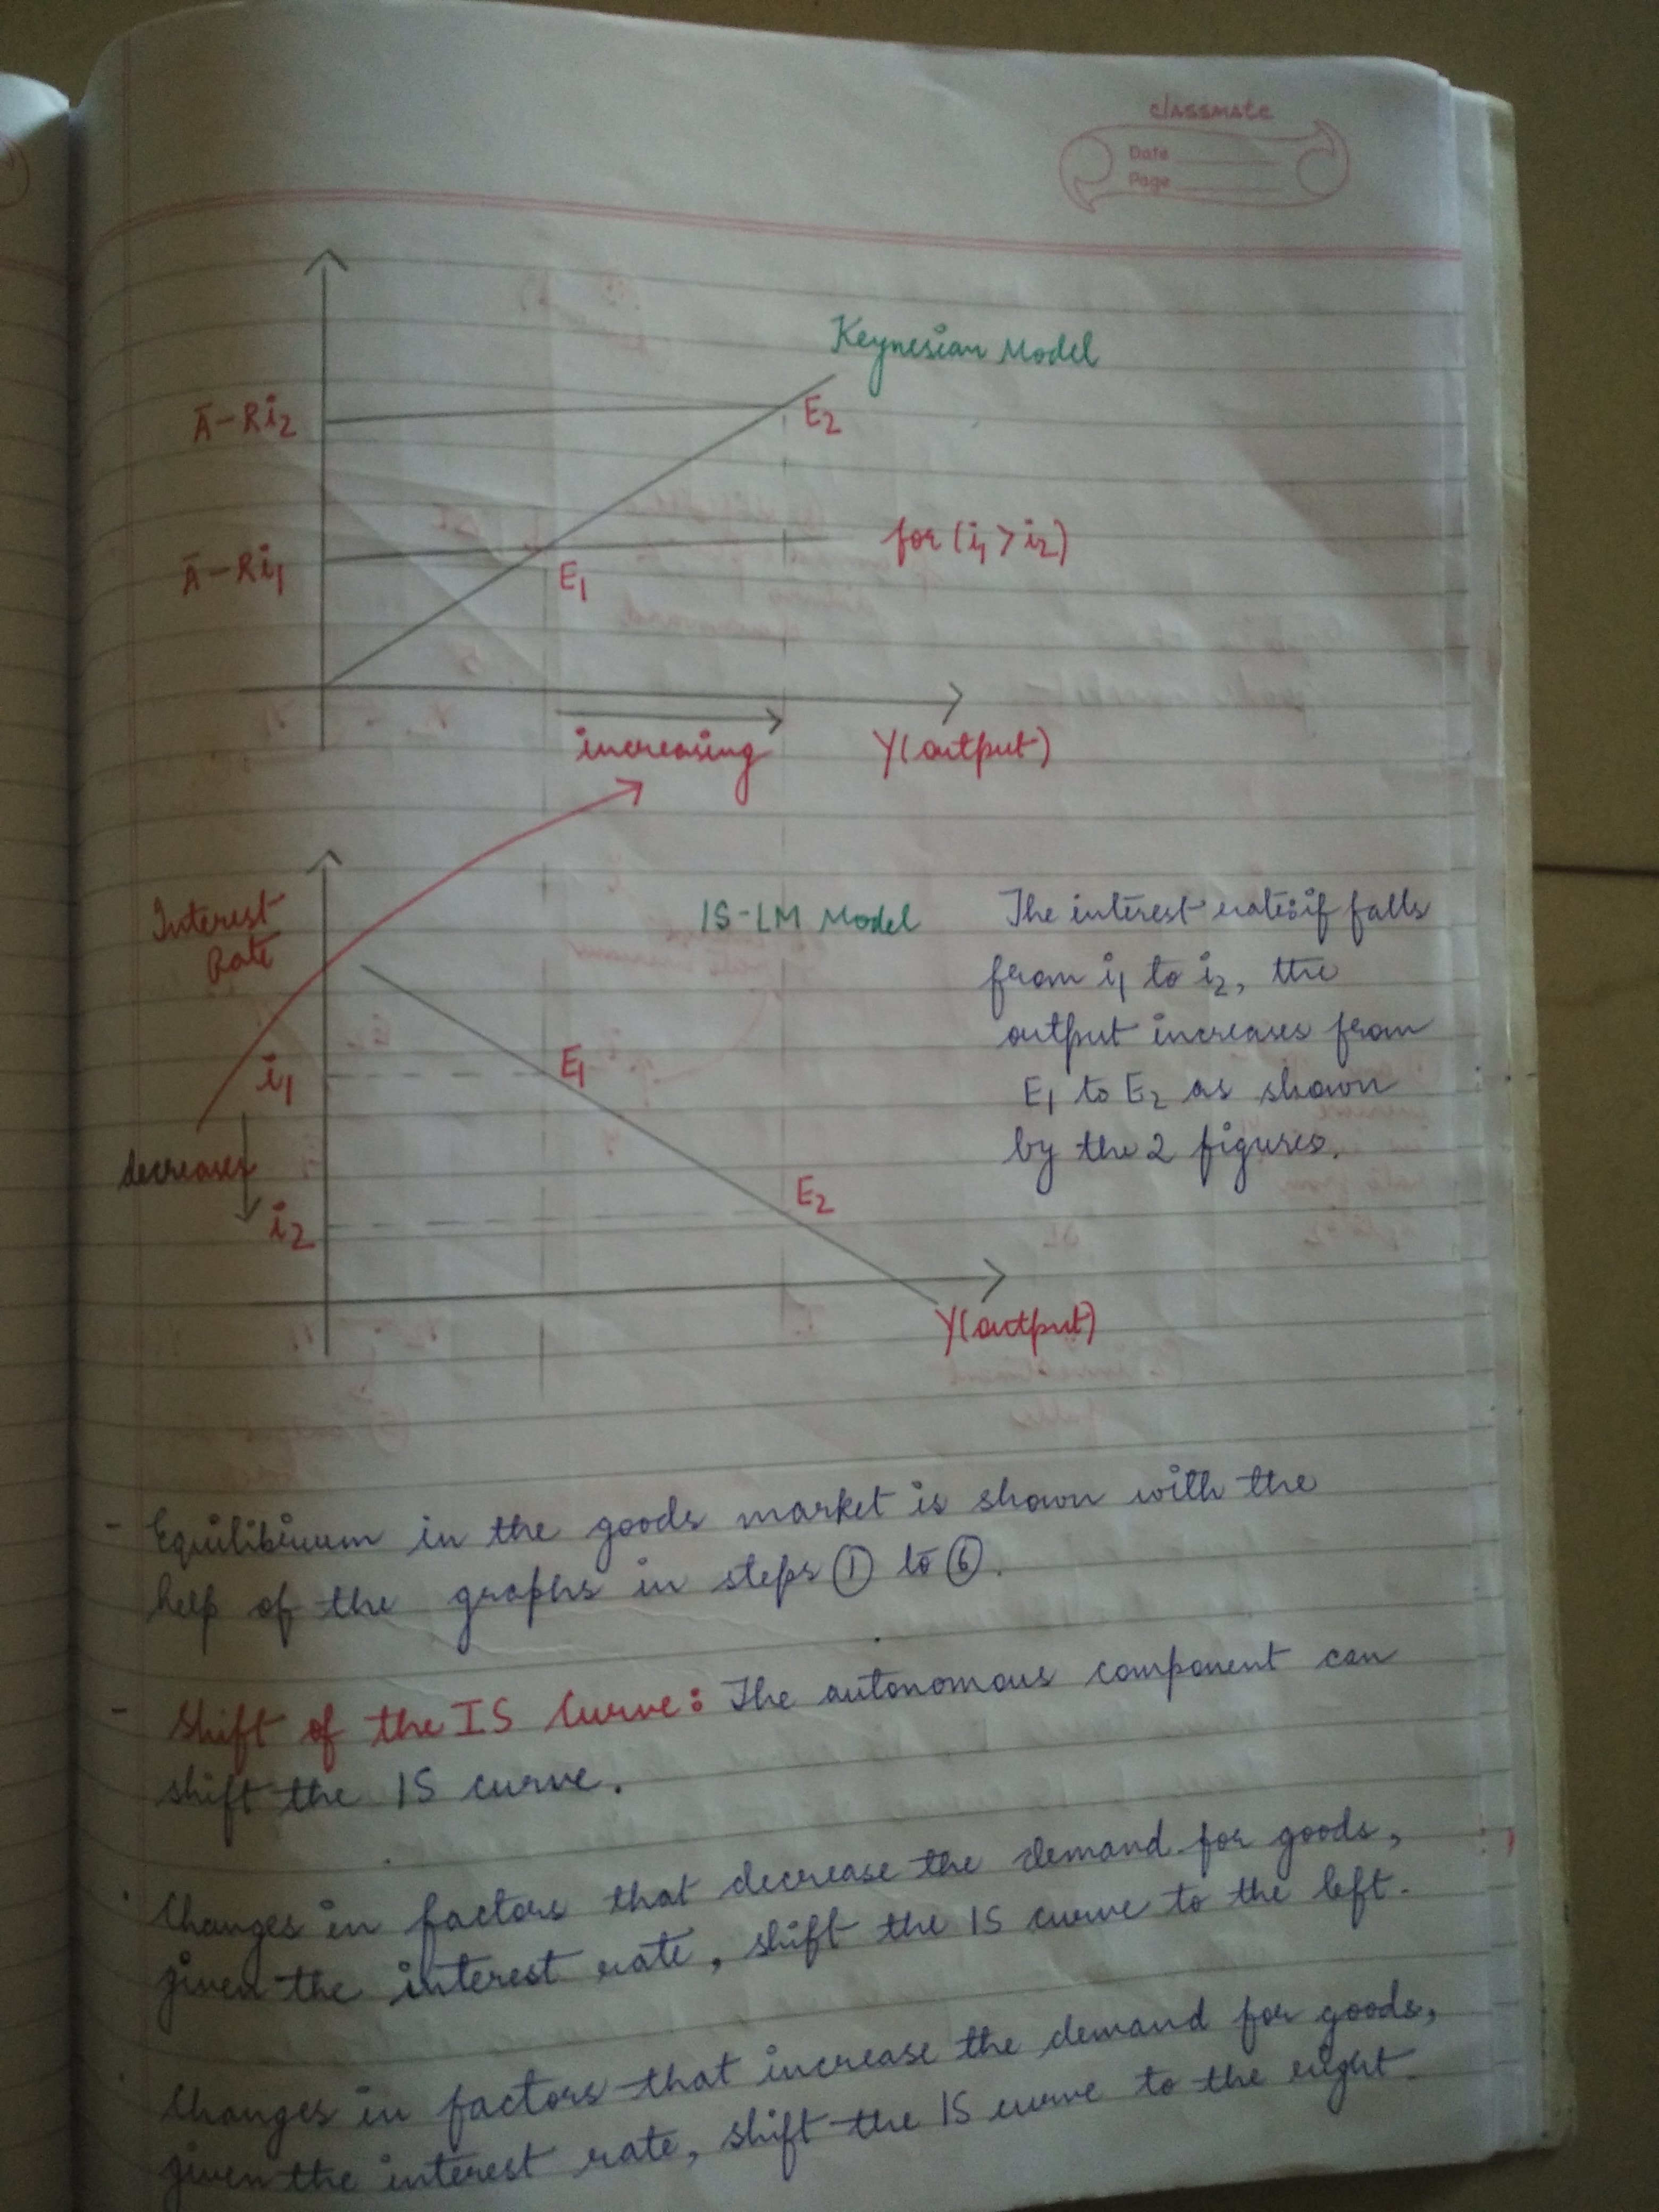 classmate
Date
Page
Keynesian Model
Ā-Ri2
E2
for (i1 > i2)
Ā-Ri1
E1
increasing
Y(output)
Interest
Rate
IS-LM Model
The interest rate if falls
from i1 to i2, the
output increases from
E1 to E2 as shown
by the 2 figures.
i1
E1
decreases
E2
i2
Y(output)
- Equilibrium in the goods market is shown with the
help of the graphs in steps ① to ⑥.
- Shift of the IS Curve: The autonomous component can
shift the IS curve.
. Changes in factors that decrease the demand for goods,
given the interest rate, shift the IS curve to the left.
. Changes in factors that increase the demand for goods,
given the interest rate, shift the IS curve to the right.